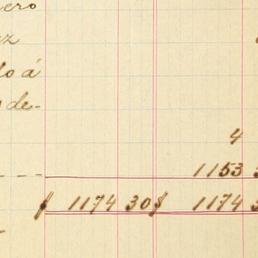 ero
ez
do á
de-
4
1153 3
$ 1174 30 $ 1174 3